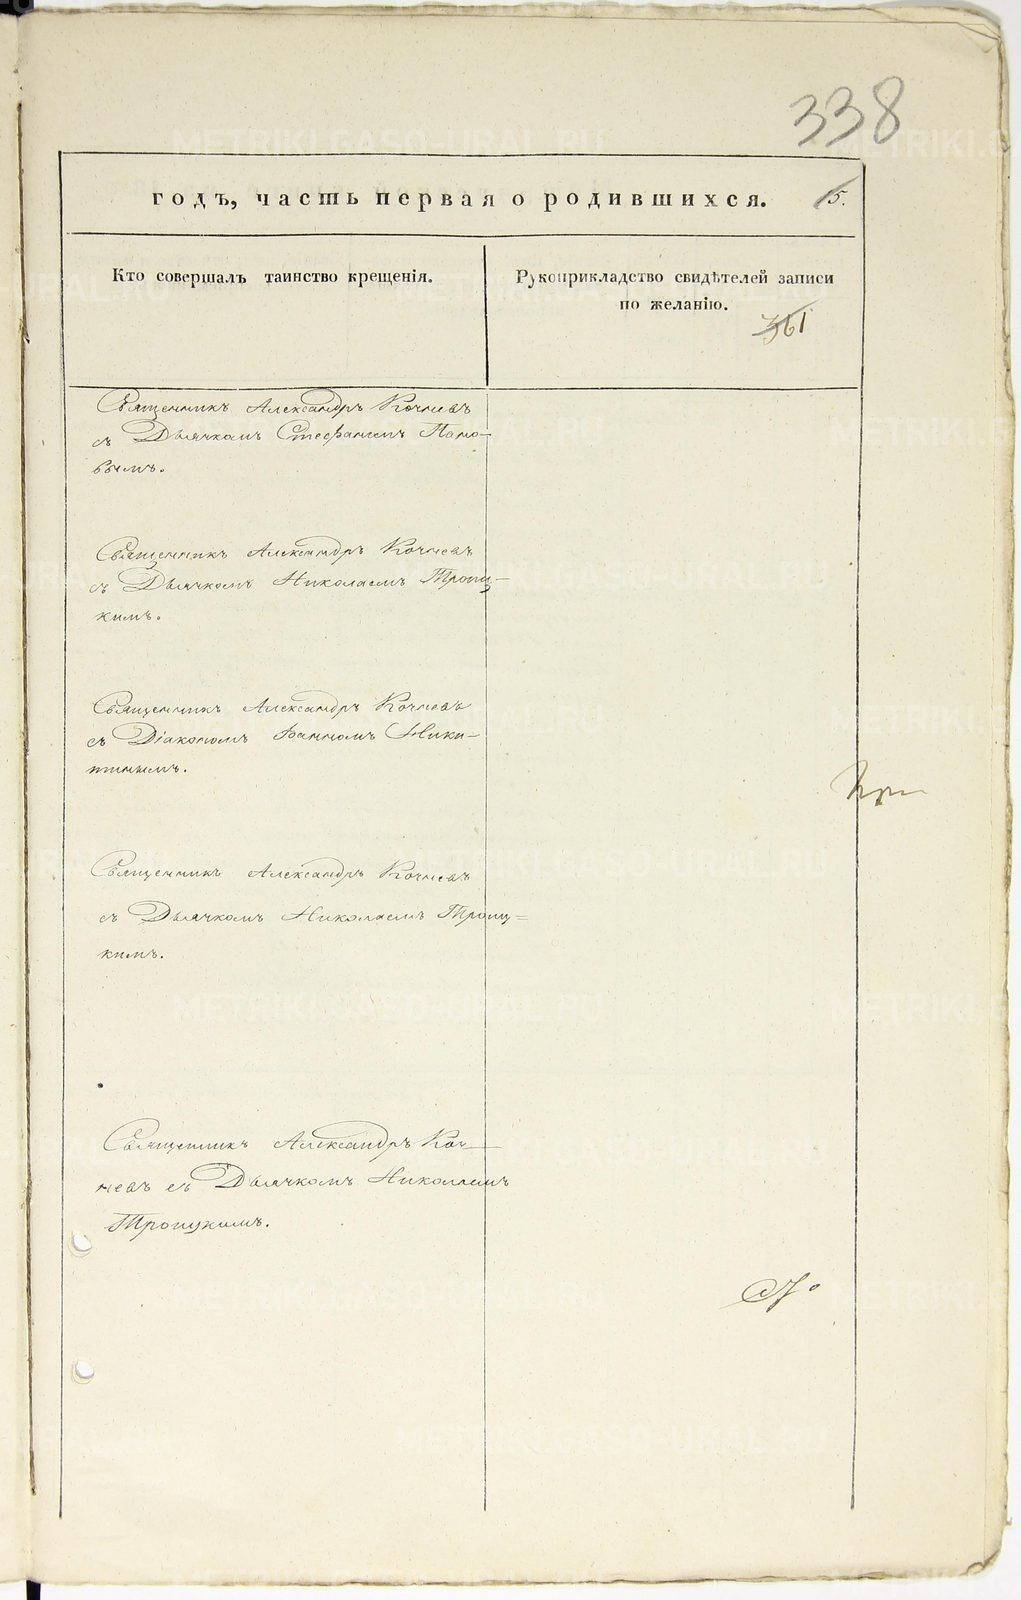 338
годъ, часть первая о родившихся. 15.
Кто совершалъ таинство крещенія.
Рукоприкладство свидѣтелей записи
по желанію.
361
Священникъ Александръ Кочневъ
съ Дьячкомъ Стефаномъ Попо-
вымъ.
Священникъ Александръ Кочневъ
съ Дьячкомъ Николаемъ Троиц-
кимъ.
Священникъ Александръ Кочневъ
съ Діакономъ Іоанномъ Ники-
тинымъ.
Священникъ Александръ Кочневъ
съ Дьячкомъ Николаемъ Троиц=
кимъ.
Священникъ Александръ Коч-
невъ съ Дьячкомъ Николаемъ
Троицкимъ.
METRIKI.GASO-URAL.RU